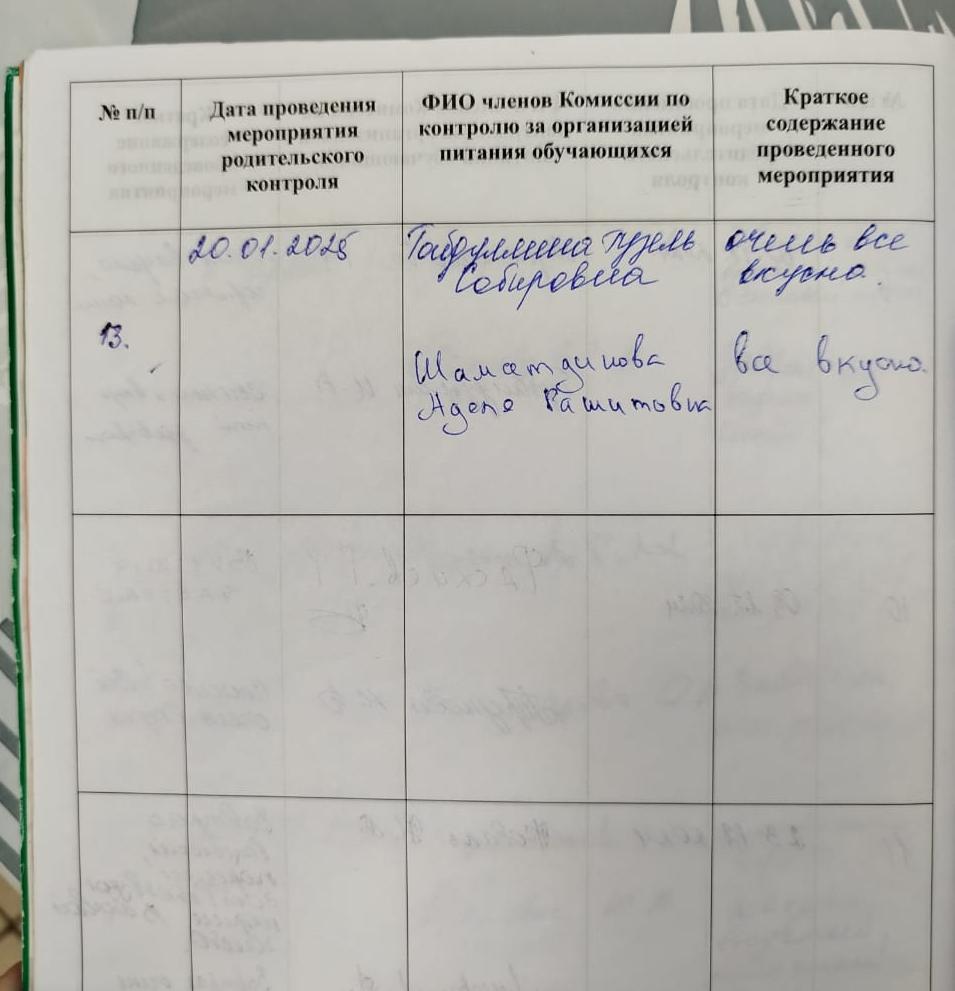 № п/п
Дата проведения
мероприятия
родительского
контроля
ФИО членов Комиссии по
контролю за организацией
питания обучающихся
Краткое
содержание
проведенного
мероприятия
13.
20.01.2025
Габдуллина Гузель
Сабировна
очень все
вкусно.
Шаметдинова
Аделя Рашитовна
все вкусно.